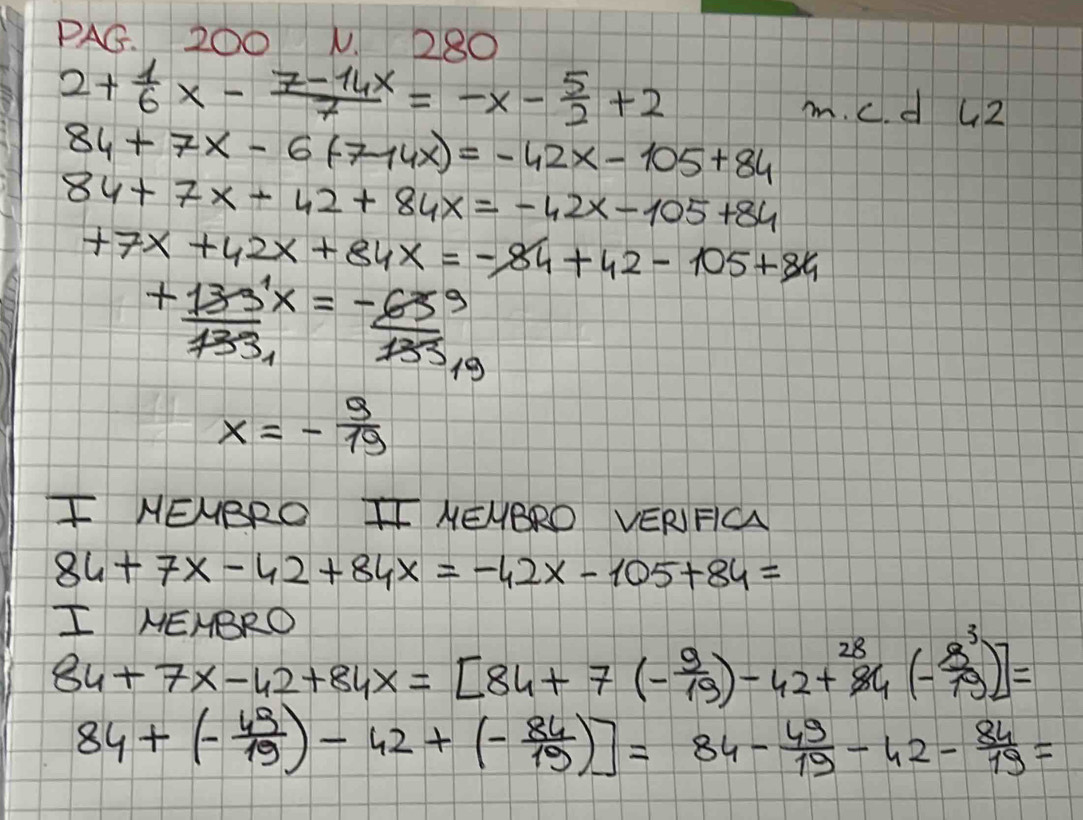 PAG. 200 N. 280
2 + 1/6 x - (7-14x)/7 = -x - 5/2 + 2 m.c.d 42
84 + 7x - 6 (7-14x) = -42x - 105 + 84
84 + 7x - 42 + 84x = -42x - 105 + 84
+7x + 42x + 84x = -84 + 42 - 105 + 84
+ 133 1 x / 133 1 = - 63 9 / 133 19
x = - 9/19
I MEMBRO II MEMBRO VERIFICA
84 + 7x - 42 + 84x = -42x - 105 + 84 =
I MEMBRO
84 + 7x - 42 + 84x = [84 + 7 (- 9/19) - 42 + 28 84 (- 9 3/19)] =
84 + (- 49/19) - 42 + (- 84/19)] = 84 - 49/19 - 42 - 84/19 =